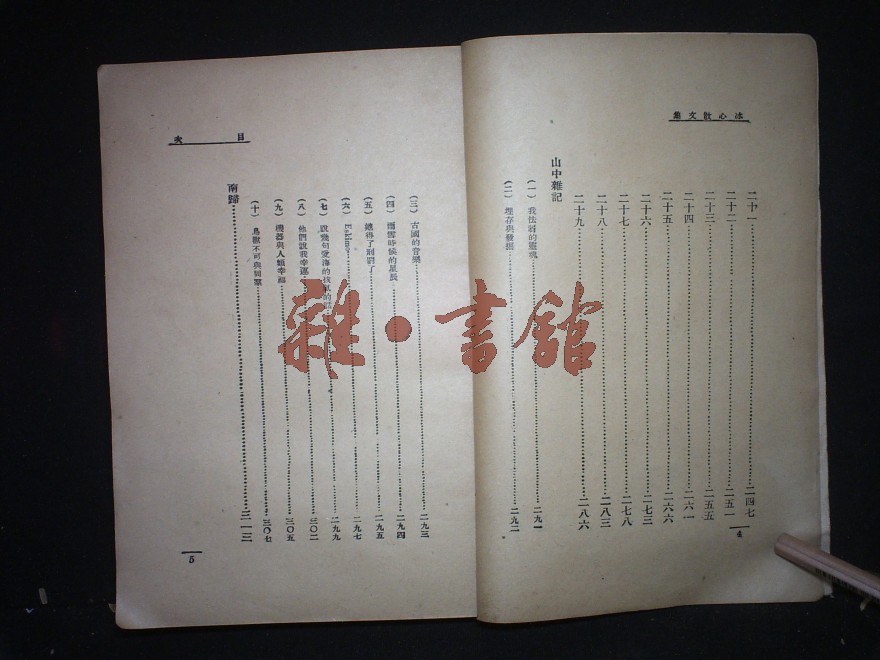 冰心散文集
二十一……二四七
二十二……二五一
二十三……二五五
二十四……二六一
二十五……二六六
二十六……二七三
二十七……二七八
二十八……二八三
二十九……二八六
山中雜記
(一) 我怯弱的靈魂……二九一
(二) 埋存與發掘……二九二
4
目次
(三) 古國的音樂……二九三
(四) 雨雪時候的星辰……二九四
(五) 她得了刑罰了……二九五
(六) Eskimo……二九七
(七) 說幾句愛海的孩氣的話……二九九
(八) 他們說我幸運……三〇二
(九) 機器與人類幸福……三〇五
(十) 鳥獸不可與同羣……三〇七
南歸……三一三
5
雜·書館